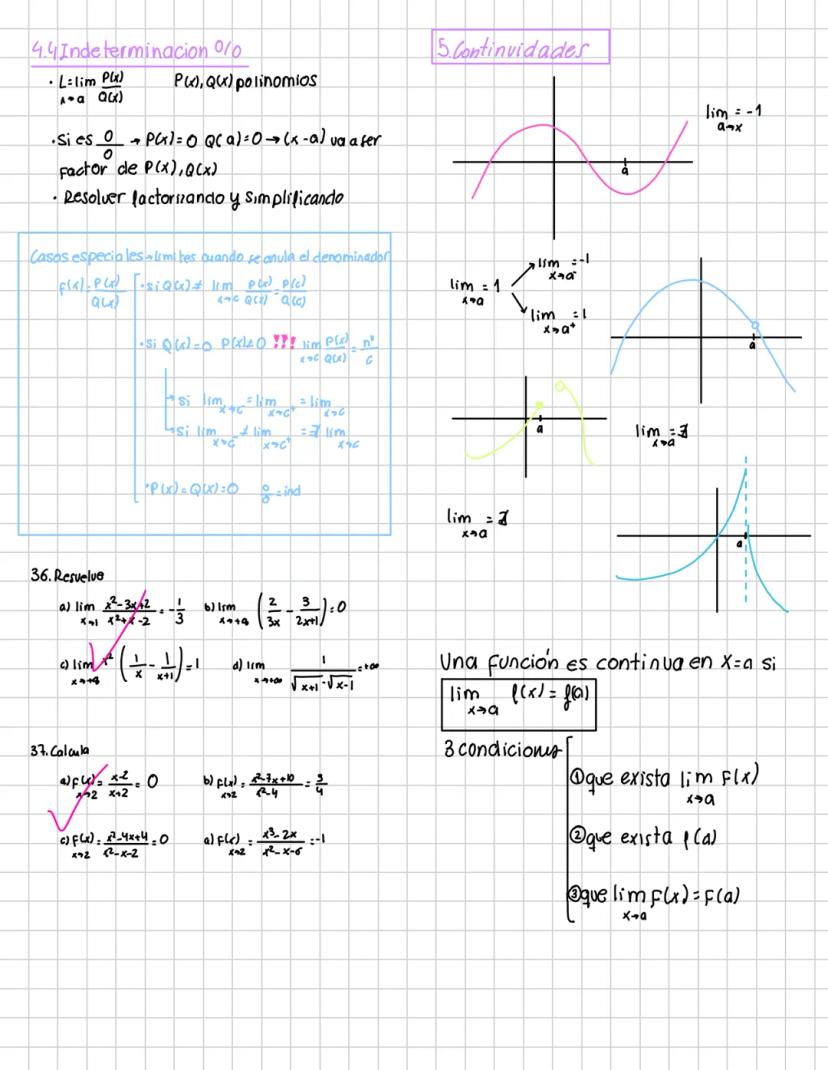 4.4 Indeterminacion 0/0
· L=lim x→a P(x)/Q(x) P(x), Q(x) polinomios
· Si es 0/0 → P(x)=0 Q(a)=0 → (x-a) va a ser
factor de P(x), Q(x)
· Resolver factorizando y simplificando
Casos especiales → limites cuando se anula el denominador
f(x)=P(x)/Q(x)
· si Q(x)≠ lim x→c P(x)/Q(x) = P(c)/Q(c)
· Si Q(x)=0 P(x)≠0 !!! lim x→c P(x)/Q(x) = nº/c
si lim x→c⁻ = lim x→c⁺ = lim x→c
Si lim x→c⁻ ≠ lim x→c⁺ = ∄ lim x→c
· P(x)=Q(x)=0 0/0 = ind
36. Resuelve
a) lim x→1 x²-3x+2/x²+x-2 = -1/3 b) lim x→+∞ (2/3x - 3/2x+1) = 0
c) lim x→+∞ x² (1/x - 1/x+1) = 1 d) lim x→+∞ 1/√x+1 - √x-1 = +∞
37. Calcula
a) F(x) x→2 = x-2/x+2 = 0 b) F(x) x→2 = x²-7x+10/x²-4 = 3/4
c) F(x) x→2 = x²-4x+4/x²-x-2 = 0 d) F(x) x→2 = x³-2x/x²-x-6 = -1
5. Continuidades
lim a→x = -1
a
lim x→a = 1
lim x→a⁻ = -1
lim x→a⁺ = 1
a
a
lim x→a = ∄
lim x→a = ∄
a
Una función es continua en x=a si
lim x→a f(x) = f(a)
3 condiciones
① que exista lim x→a F(x)
② que exista f(a)
③ que lim x→a F(x) = F(a)